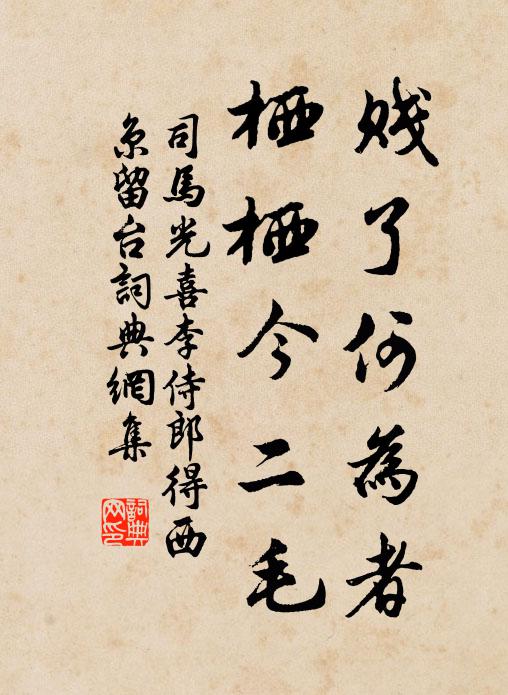 贱了何為者
栖栖今二毛
司馬光喜李侍郎得西
京留台詞典網集
詞典网印